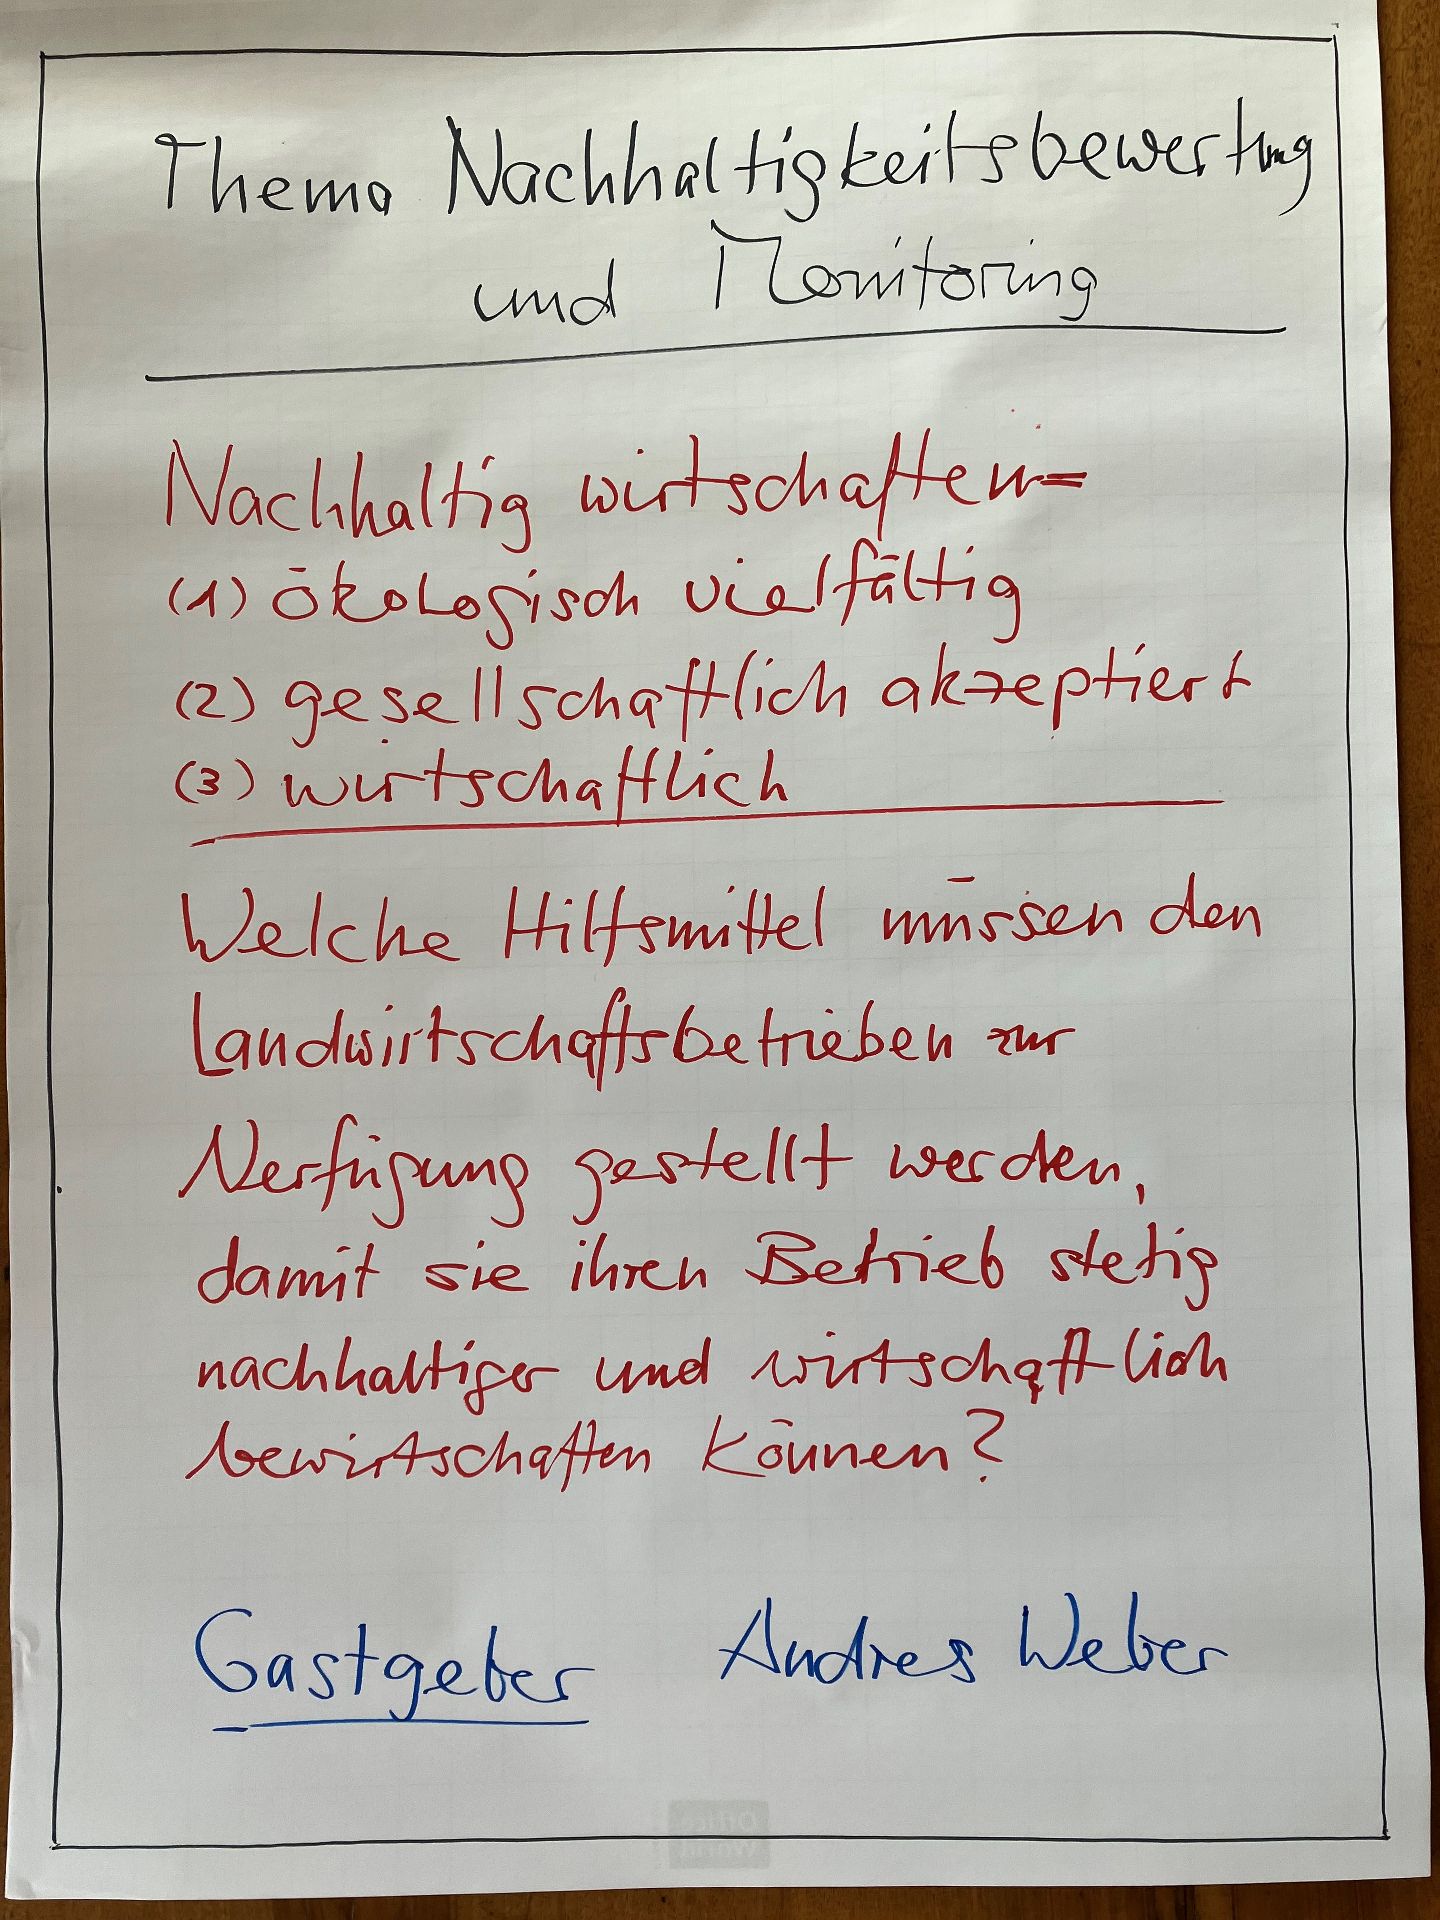 Thema Nachhaltigkeitsbewertung
und Monitoring
Nachhaltig wirtschaften=
(1) ökologisch vielfältig
(2) gesellschaftlich akzeptiert
(3) wirtschaftlich
Welche Hilfsmittel müssen den
Landwirtschaftsbetrieben zur
Verfügung gestellt werden,
damit sie ihren Betrieb stetig
nachhaltiger und wirtschaftlich
bewirtschaften können?
Gastgeber Andres Weber